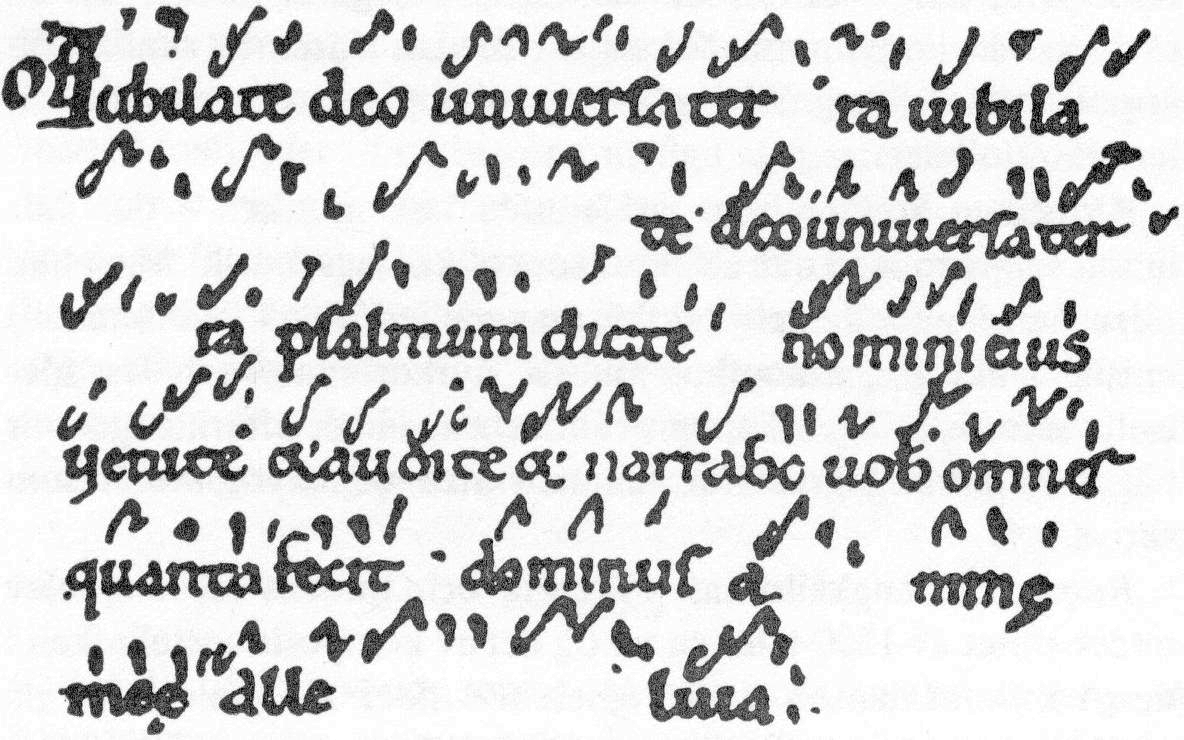 Of Iubilate deo uniuersa ter ra iubila
te deo uniuersa ter
ra psalmum dicite nomini eius
uenite & audite & narrabo uob omne
quanta fecit dominus a nime
meę alle
luia: